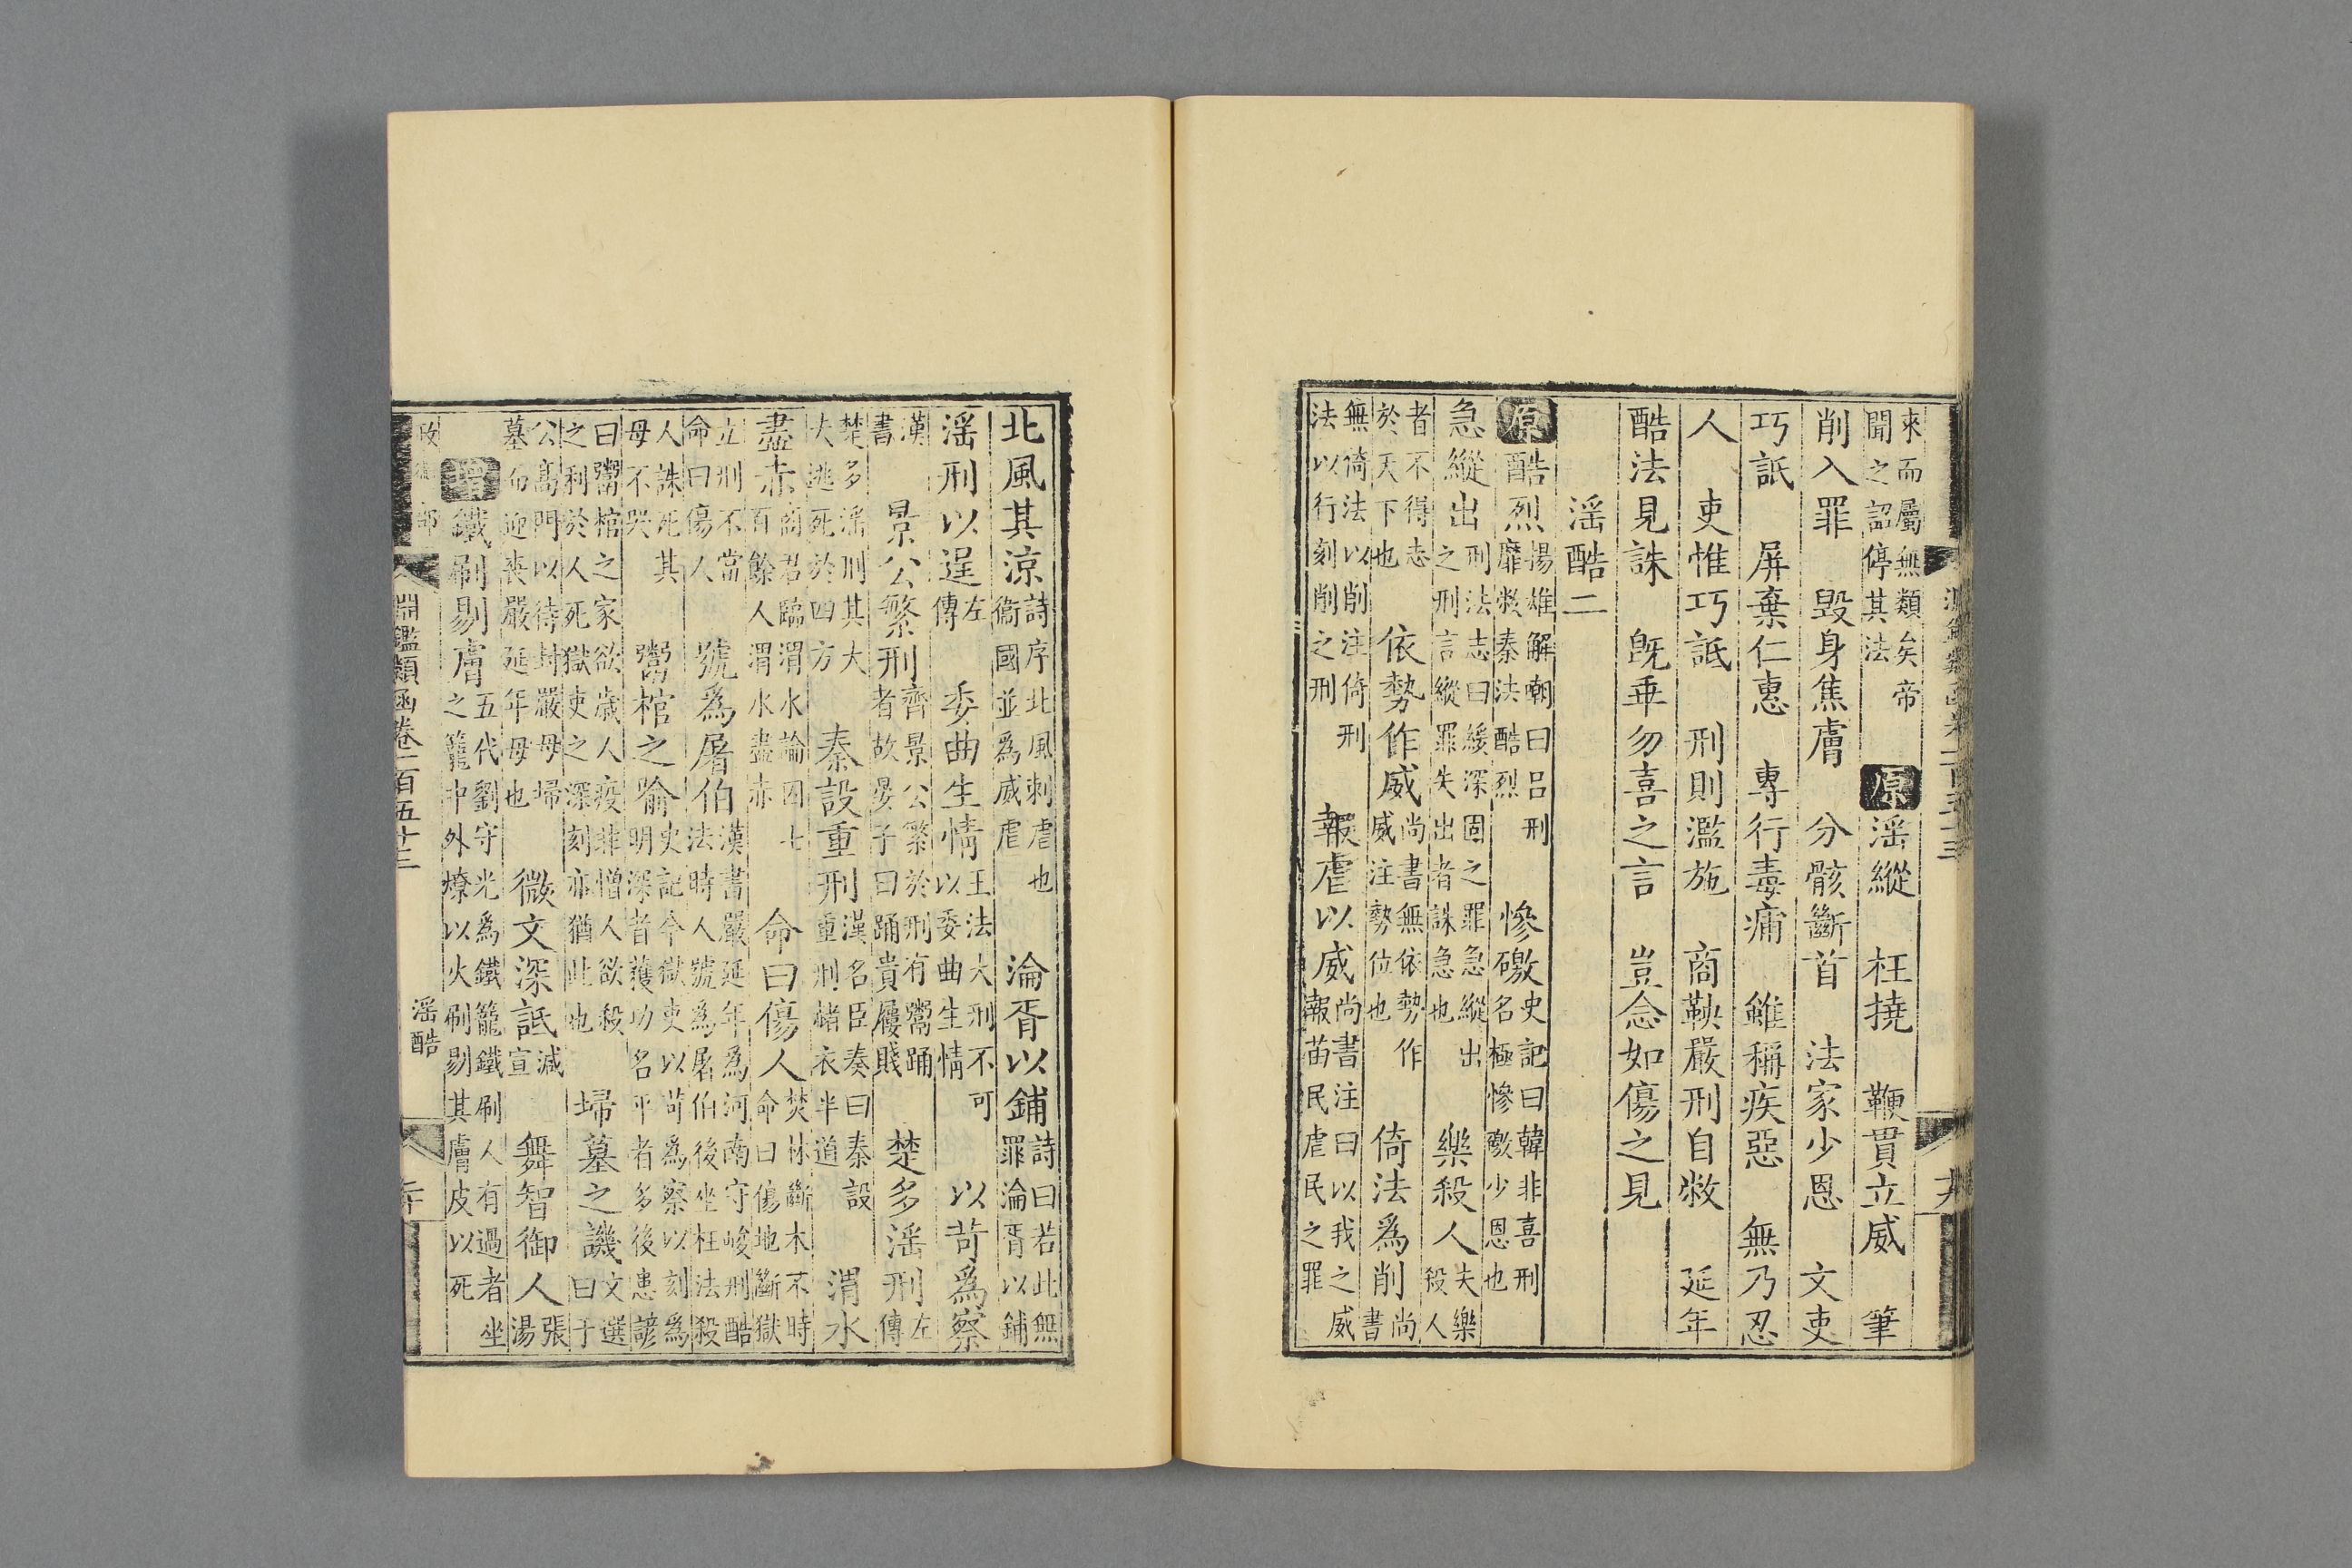 來而屬無類矣帝聞之詔停其法 原 淫縱 枉撓 鞭貫立威 筆
削入罪 毁身焦膚 分骸斷首 法家少恩 文吏
巧詆 屏棄仁惠 專行毒痡 雖稱疾惡 無乃忍
人 吏惟巧詆 刑則濫施 商鞅嚴刑自敝 延年
酷法見誅 旣乖勿喜之言 豈念如傷之見
淫酷二
原 酷烈 揚雄解嘲曰呂刑靡敝秦法酷烈 慘礉 史記曰韓非喜刑名極慘礉少恩也
急縱出 刑法志曰緩深固之罪急縱出之刑言縱罪失出者誅急也 樂殺人 夫樂殺人
者不得志於天下也 依勢作威 尚書無依勢作威注勢位也 倚法爲削 尚書
無倚法以削注倚刑法以行刻削之刑 報虐以威 尚書注曰以我之威報苗民虐民之罪
北風其涼 詩序北風刺虐也衞國並爲威虐 淪胥以鋪 詩曰若此無罪淪胥以鋪
淫刑以逞 左傳 委曲生情 王法大刑不可以委曲生情 以苛爲察
漢書 景公繁刑 齊景公繁於刑有鬻踊者故晏子曰踊貴屨賤 楚多淫刑 左傳
楚多淫刑其大夫逃死於四方 秦設重刑 漢名臣奏曰秦設重刑赭衣半道 渭水
盡赤 商君臨渭水論囚七百餘人渭水盡赤 命曰傷人 焚林斷木不時命曰傷地斷獄
立刑不當命曰傷人 號爲屠伯 漢書嚴延年爲河南守峻刑酷法時人號爲屠伯後坐枉法殺
人誅死其母不哭 鬻棺之喻 史記今獄吏以苛爲察以刻爲明深者獲功名平者多後患諺
曰鬻棺之家欲歲人疫非憎人欲殺之利於人死獄吏之深刻亦猶此也 埽墓之譏 文選曰于
公高門以待封嚴母埽墓而迎喪嚴延年母也 微文深詆 減宣 舞智御人 張湯
增 鐵刷剔膚 五代劉守光爲鐵籠鐵刷人有過者坐之籠中外燎以火刷剔其膚皮以死
淵鑑類函卷二百五十三
淫酷